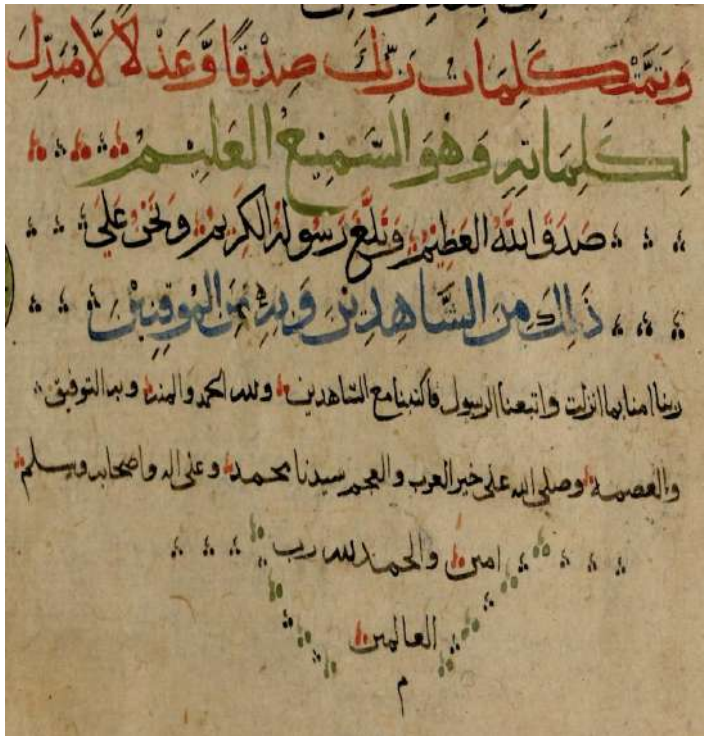 وَتَمَّتْ كَلِمَاتُ رَبِّكَ صِدْقًا وَّعَدْلًا لَّا مُبَدِّلَ
لِكَلِمَاتِهِ وَهُوَ السَّمِيعُ الْعَلِيمُ
صَدَقَ اللَّهُ الْعَظِيمُ وَبَلَّغَ رَسُولُهُ الْكَرِيمُ وَنَحْنُ عَلَى
ذَلِكَ مِنَ الشَّاهِدِينَ وَبِهِ مِنَ الْمُوقِنِينَ
ربنا امنا بما انزلت واتبعنا الرسول فاكتبنا مع الشاهدين ولله الحمد والمنة وبه التوفيق
والعصمة وصلى الله على خير العرب والعجم سيدنا محمد وعلى اله واصحابه وسلم
امين والحمد لله رب
العالمين
م